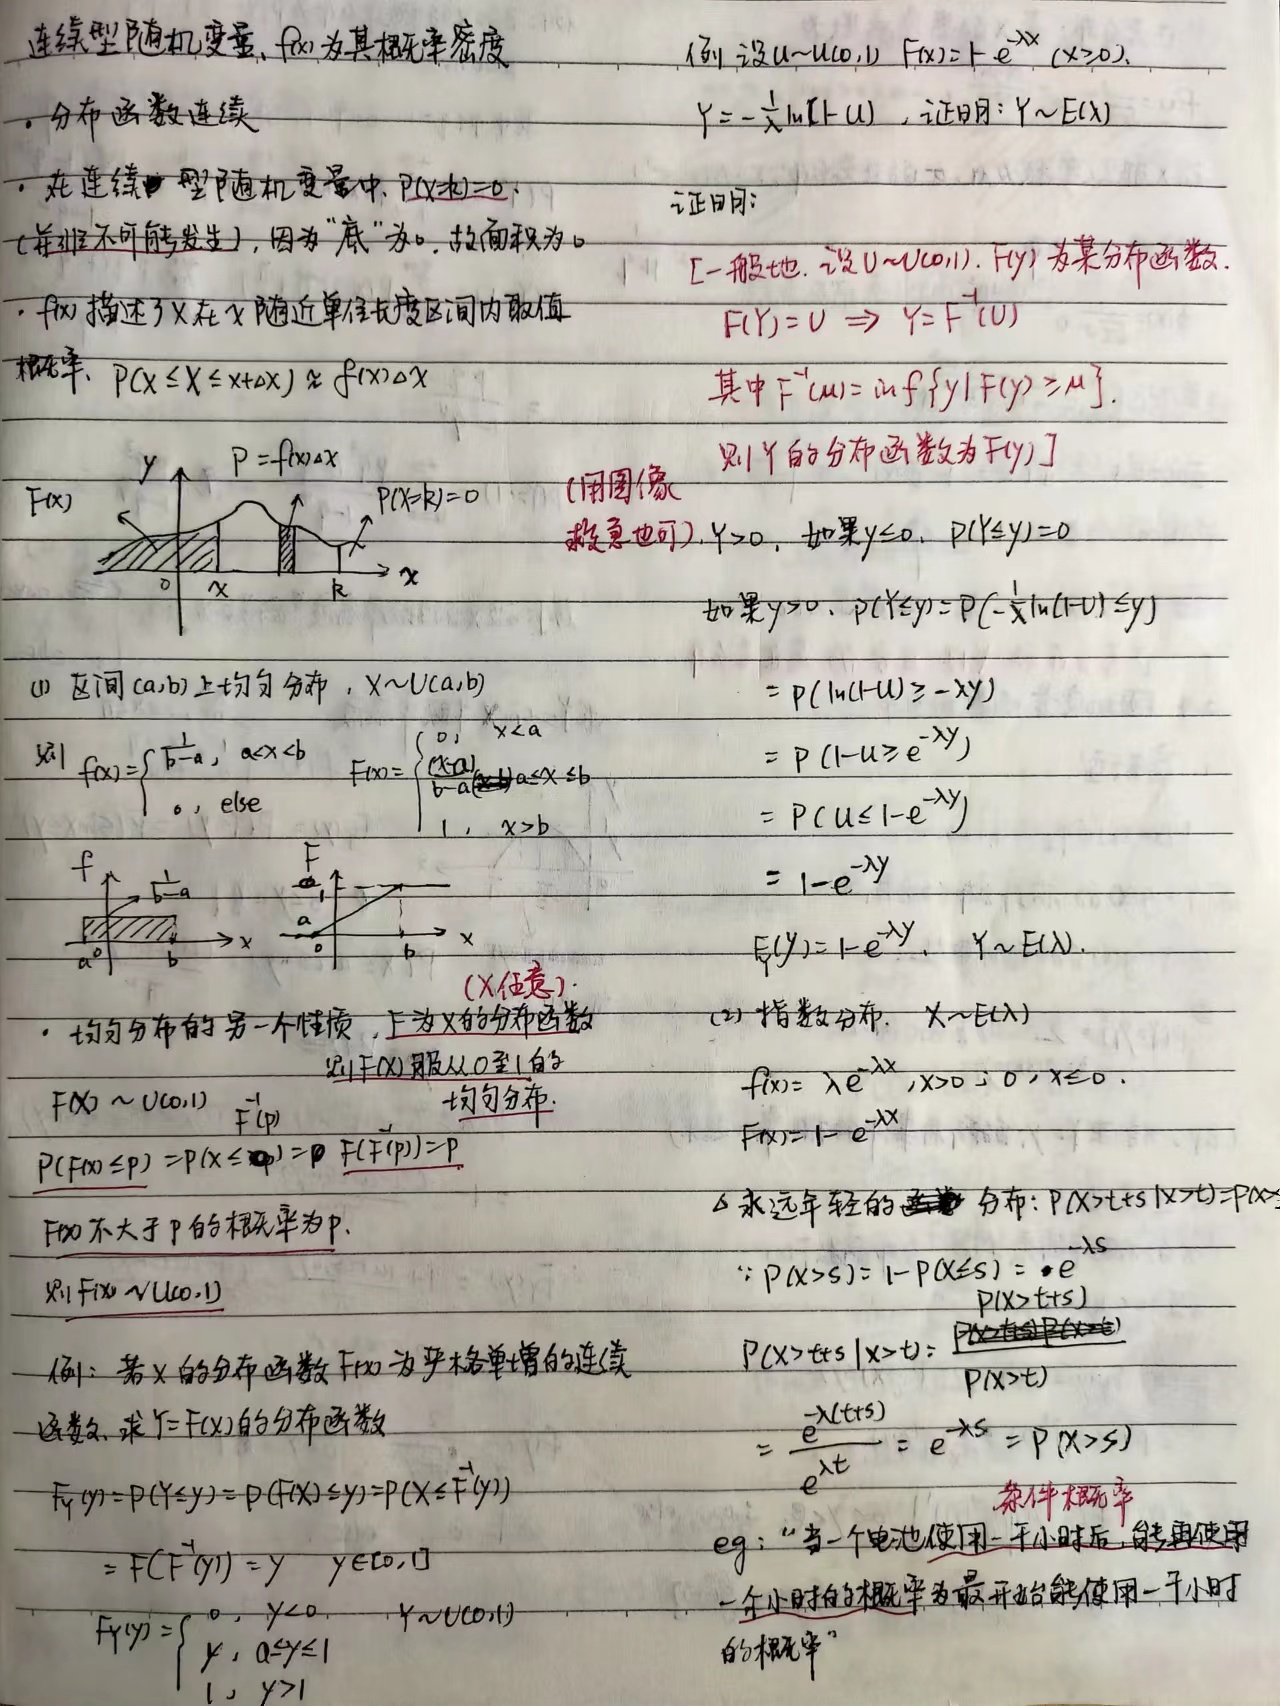 连续型随机变量、f(x)为其概率密度
· 分布函数连续
· 在连续型随机变量中、P(X=k)=0.
(并非不可能发生)，因为“底”为0，故面积为0
· f(x)描述了X在x随近单位长度区间内取值
概率、P(x≤X≤x+Δx)≈f(x)Δx
y P=f(x)Δx
F(x) P(X=k)=0
0 x k x
(1) 区间(a,b)上均匀分布，X~U(a,b)
则 f(x)={ 1/(b-a), a<x<b
0, else
F(x)={ 0, x<a
(x-a)/(b-a) a≤x≤b
1, x>b
f 1/(b-a) a 0 b x
F 1 a 0 b x
(X任意).
· 均匀分布的另一个性质，F为X的分布函数
则F(X)服从0至1的
均匀分布.
F(X)~U(0,1)
F⁻¹(p)
P(F(X)≤p)=P(X≤ )=p F(F⁻¹(p))=p
F(X)不大于p的概率为p.
则F(X)~U(0,1)
例：若X的分布函数F(x)为严格单增的连续
函数、求Y=F(X)的分布函数
F_Y(y)=P(Y≤y)=P(F(X)≤y)=P(X≤F⁻¹(y))
=F(F⁻¹(y))=y y∈[0,1]
F_Y(y)={ 0, y<0 Y~U(0,1)
y, 0≤y≤1
1, y>1
例 设U~U(0,1) F(x)=1-e^{-λx} (x≥0).
Y=-1/λ ln(1-U)，证明：Y~E(λ)
证明：
[一般地. 设U~U(0,1). F(y)为某分布函数.
F(Y)=U ⇒ Y=F⁻¹(U)
其中F⁻¹(u)=inf{y|F(y)≥u}.
则Y的分布函数为F(y)]
(用图像
救急也可)
Y>0，如果y≤0、P(Y≤y)=0
如果y>0、P(Y≤y)=P(-1/λ ln(1-U)≤y)
=P(ln(1-U)≥-λy)
=P(1-U≥e^{-λy})
=P(U≤1-e^{-λy})
=1-e^{-λy}
F_Y(y)=1-e^{-λy}. Y~E(λ).
(2) 指数分布. X~E(λ)
f(x)=λe^{-λx}, x>0; 0, x≤0.
F(x)=1-e^{-λx}
△ 永远年轻的 分布：P(X>t+s|X>t)=P(X>
∵ P(X>s)=1-P(X≤s)=e^{-λs}
P(X>t+s|X>t)= P(X>t+s)
P(X>t)
= e^{-λ(t+s)} / e^{λt} = e^{-λs} = P(X>s)
条件概率
eg：“当一个电池使用一千小时后，能再使用
一千小时的概率为最开始能使用一千小时
的概率”